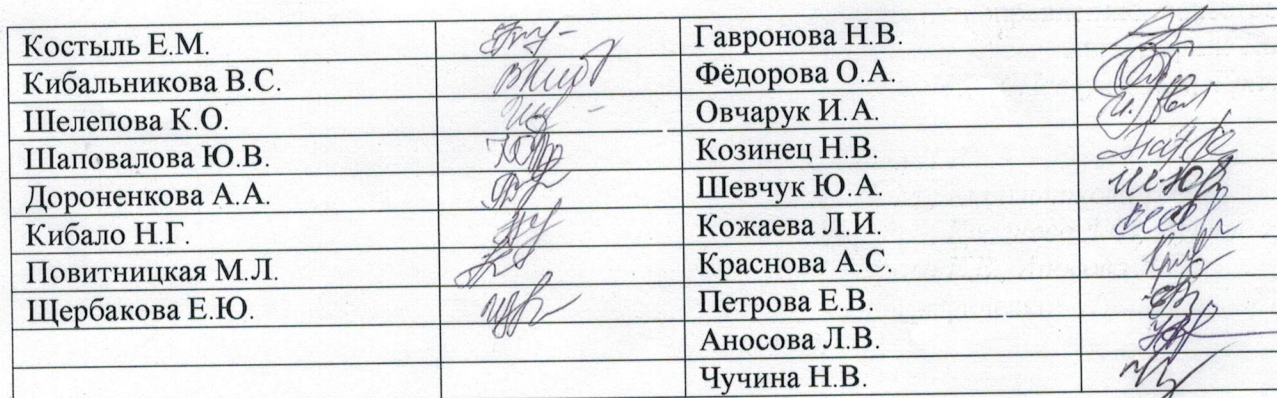 Костыль Е.М. Гавронова Н.В.
Кибальникова В.С. Фёдорова О.А.
Шелепова К.О. Овчарук И.А.
Шаповалова Ю.В. Козинец Н.В.
Дороненкова А.А. Шевчук Ю.А.
Кибало Н.Г. Кожаева Л.И.
Повитницкая М.Л. Краснова А.С.
Щербакова Е.Ю. Петрова Е.В.
Аносова Л.В.
Чучина Н.В.